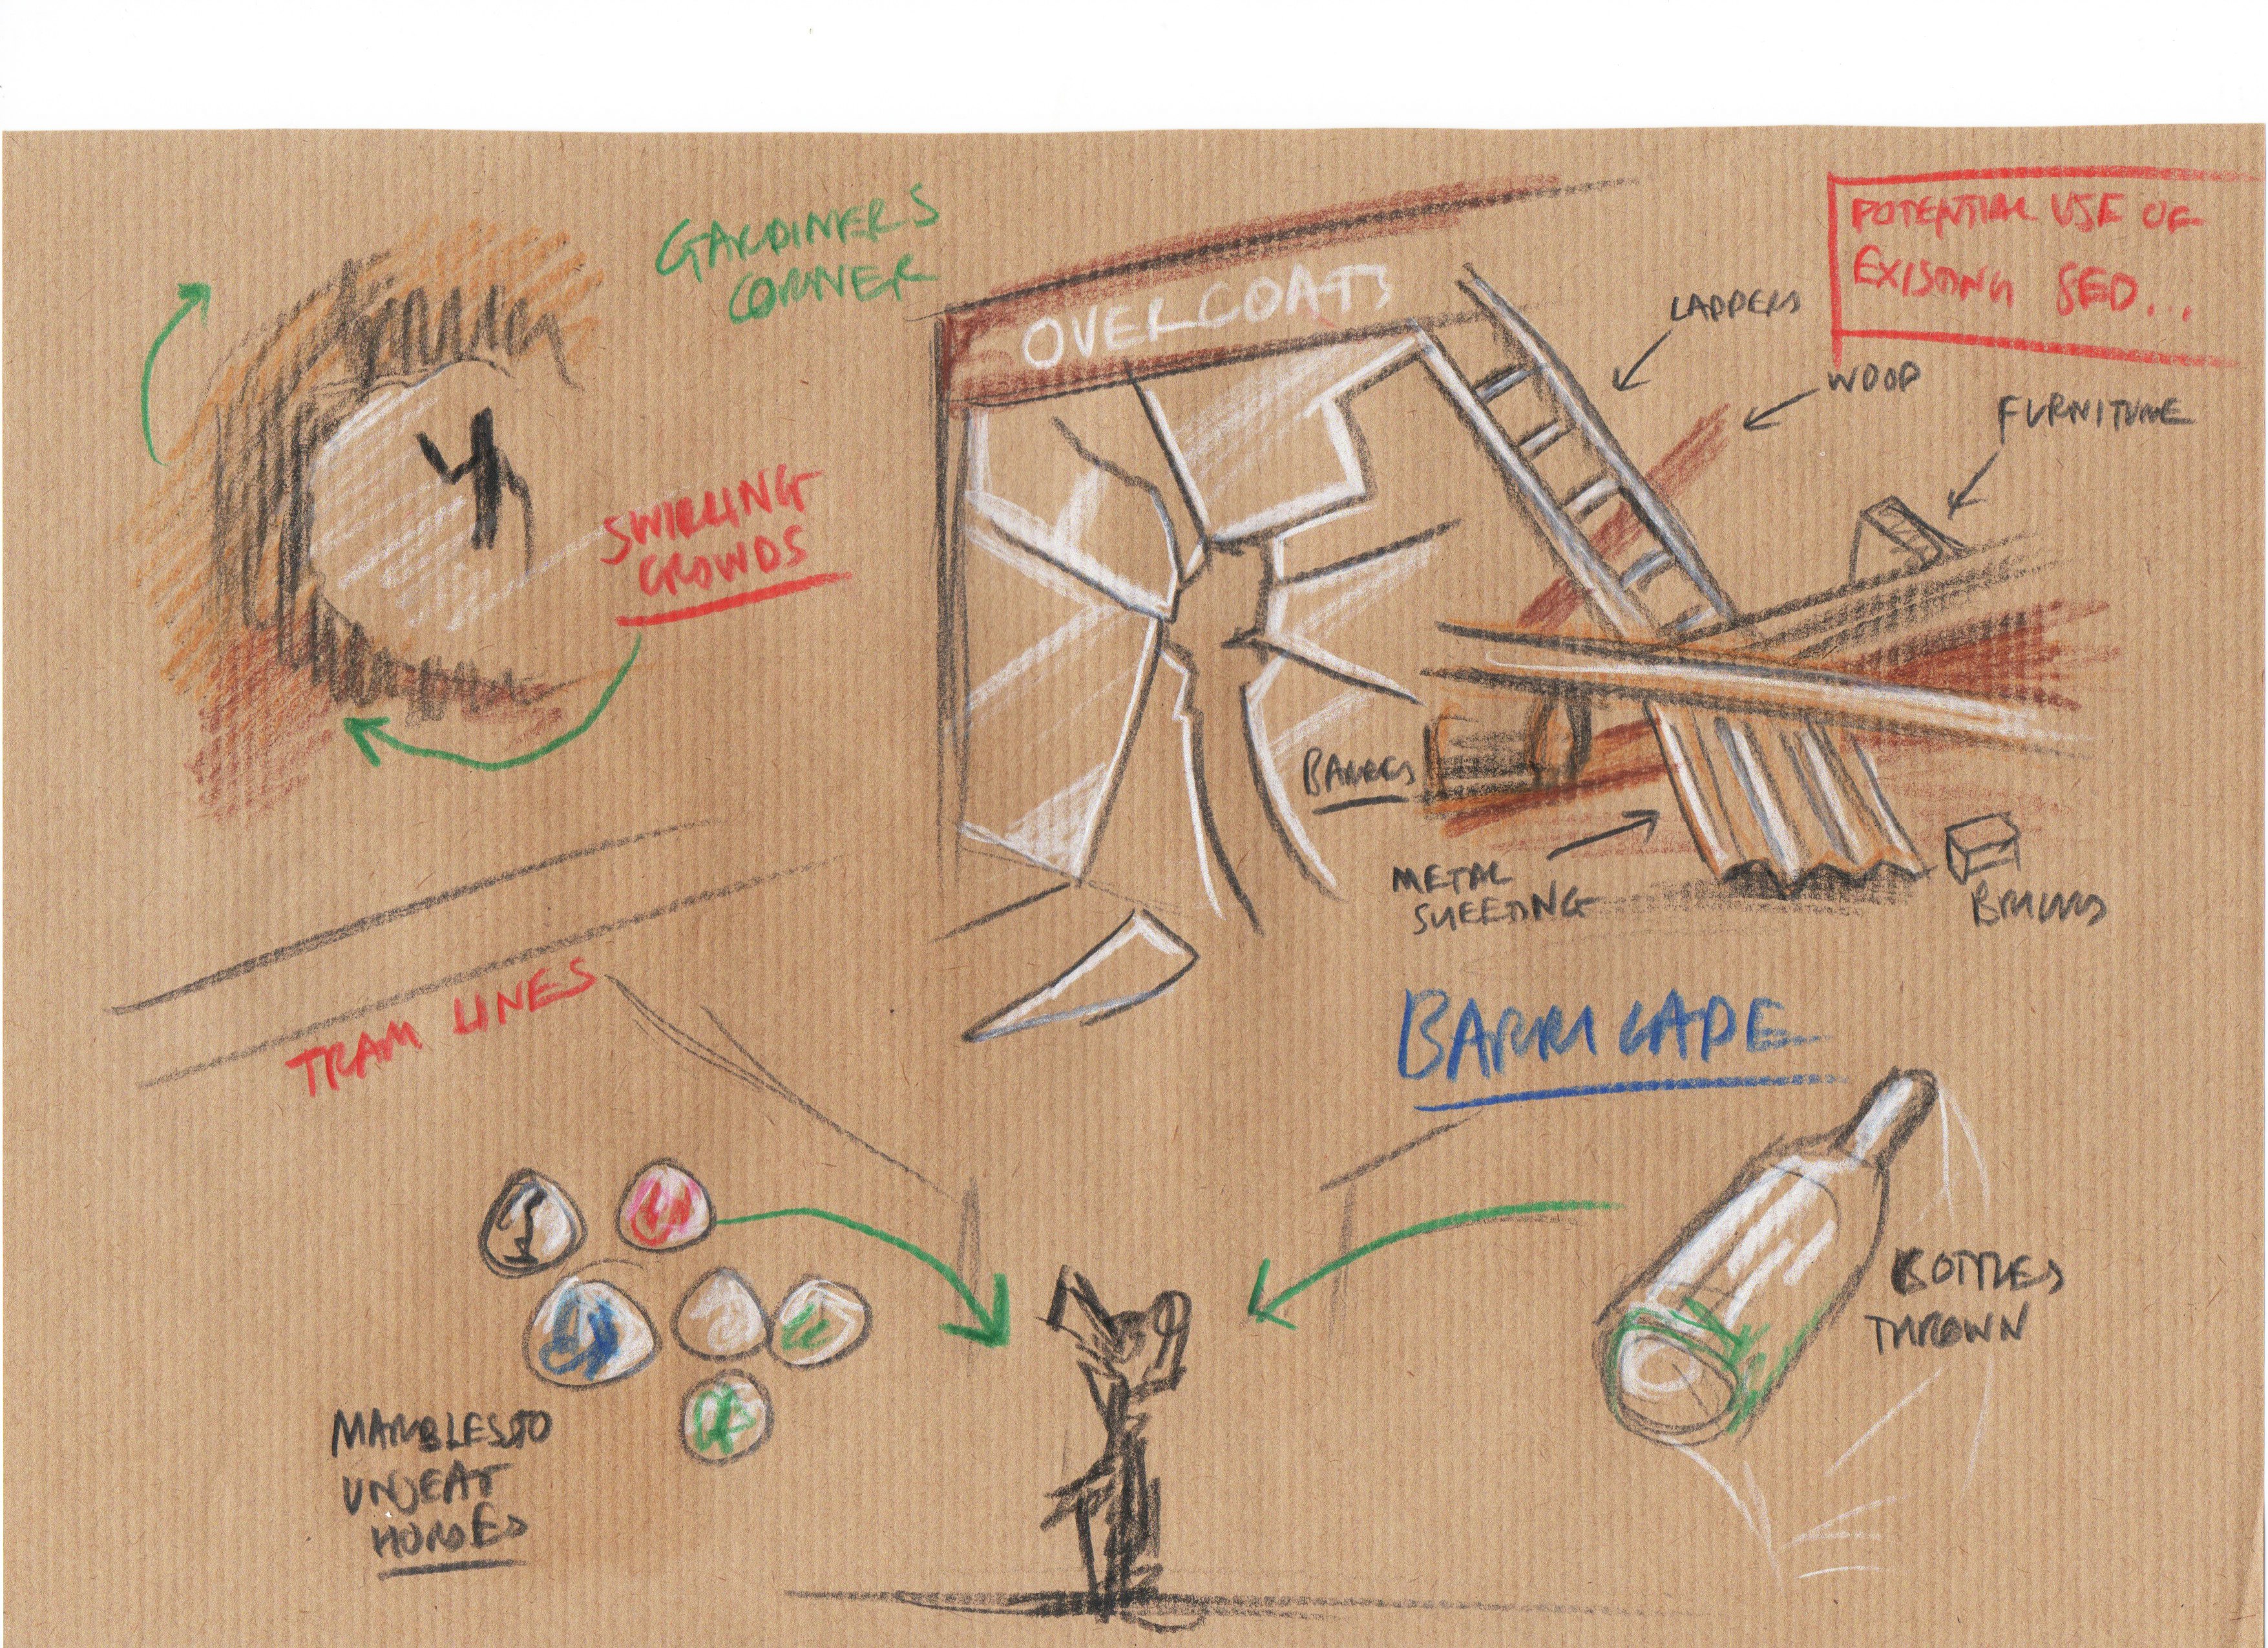 GARDINERS
CORNER
OVERCOATS
POTENTIAL USE OF
EXISTING SED...
LADDERS
WOOD
FURNITURE
SWIRLING
CROWDS
BARRELS
METAL
SHEETING
BRICKS
TRAM LINES
BARRICADE
BOTTLES
THROWN
MARBLES TO
UNSEAT
HORSES